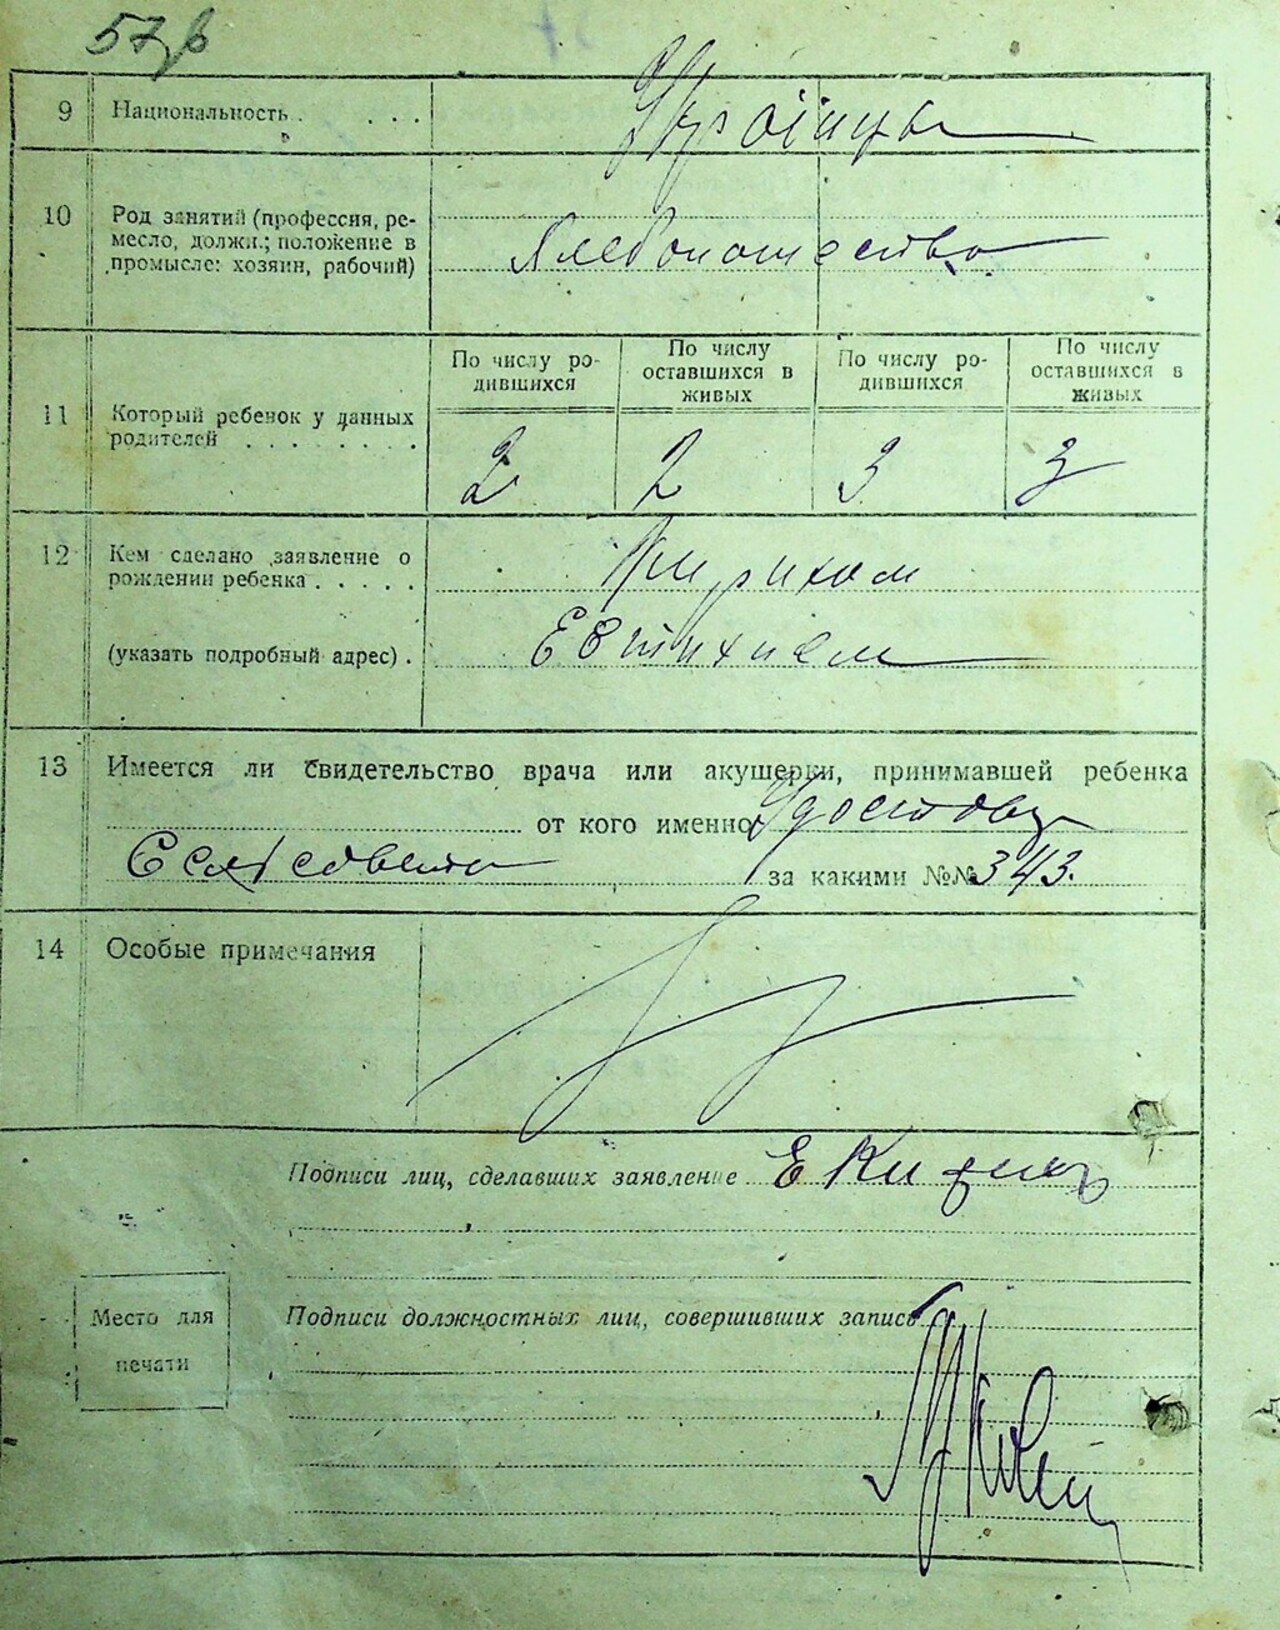 57
9 Национальность . . . . Українцы
10 Род занятий (профессия, ре-
месло, должн.; положение в
промысле: хозяин, рабочий)
Хлебопашество
По числу ро-
дившихся
По числу
оставшихся в
живых
По числу ро-
дившихся
По числу
оставшихся в
живых
11 Который ребенок у данных
родителей . . . . . . . .
2 2 3 3
12 Кем сделано заявление о
рождении ребенка . . . . .
Кирихом
(указать подробный адрес) .
Евтихием
13 Имеется ли свидетельство врача или акушерки, принимавшей ребенка
от кого именно Удостов
Сельсовета за какими №№ 343.
14 Особые примечания
Подписи лиц, сделавших заявление Е Кирих
Место для
печати
Подписи должностных лиц, совершивших запись